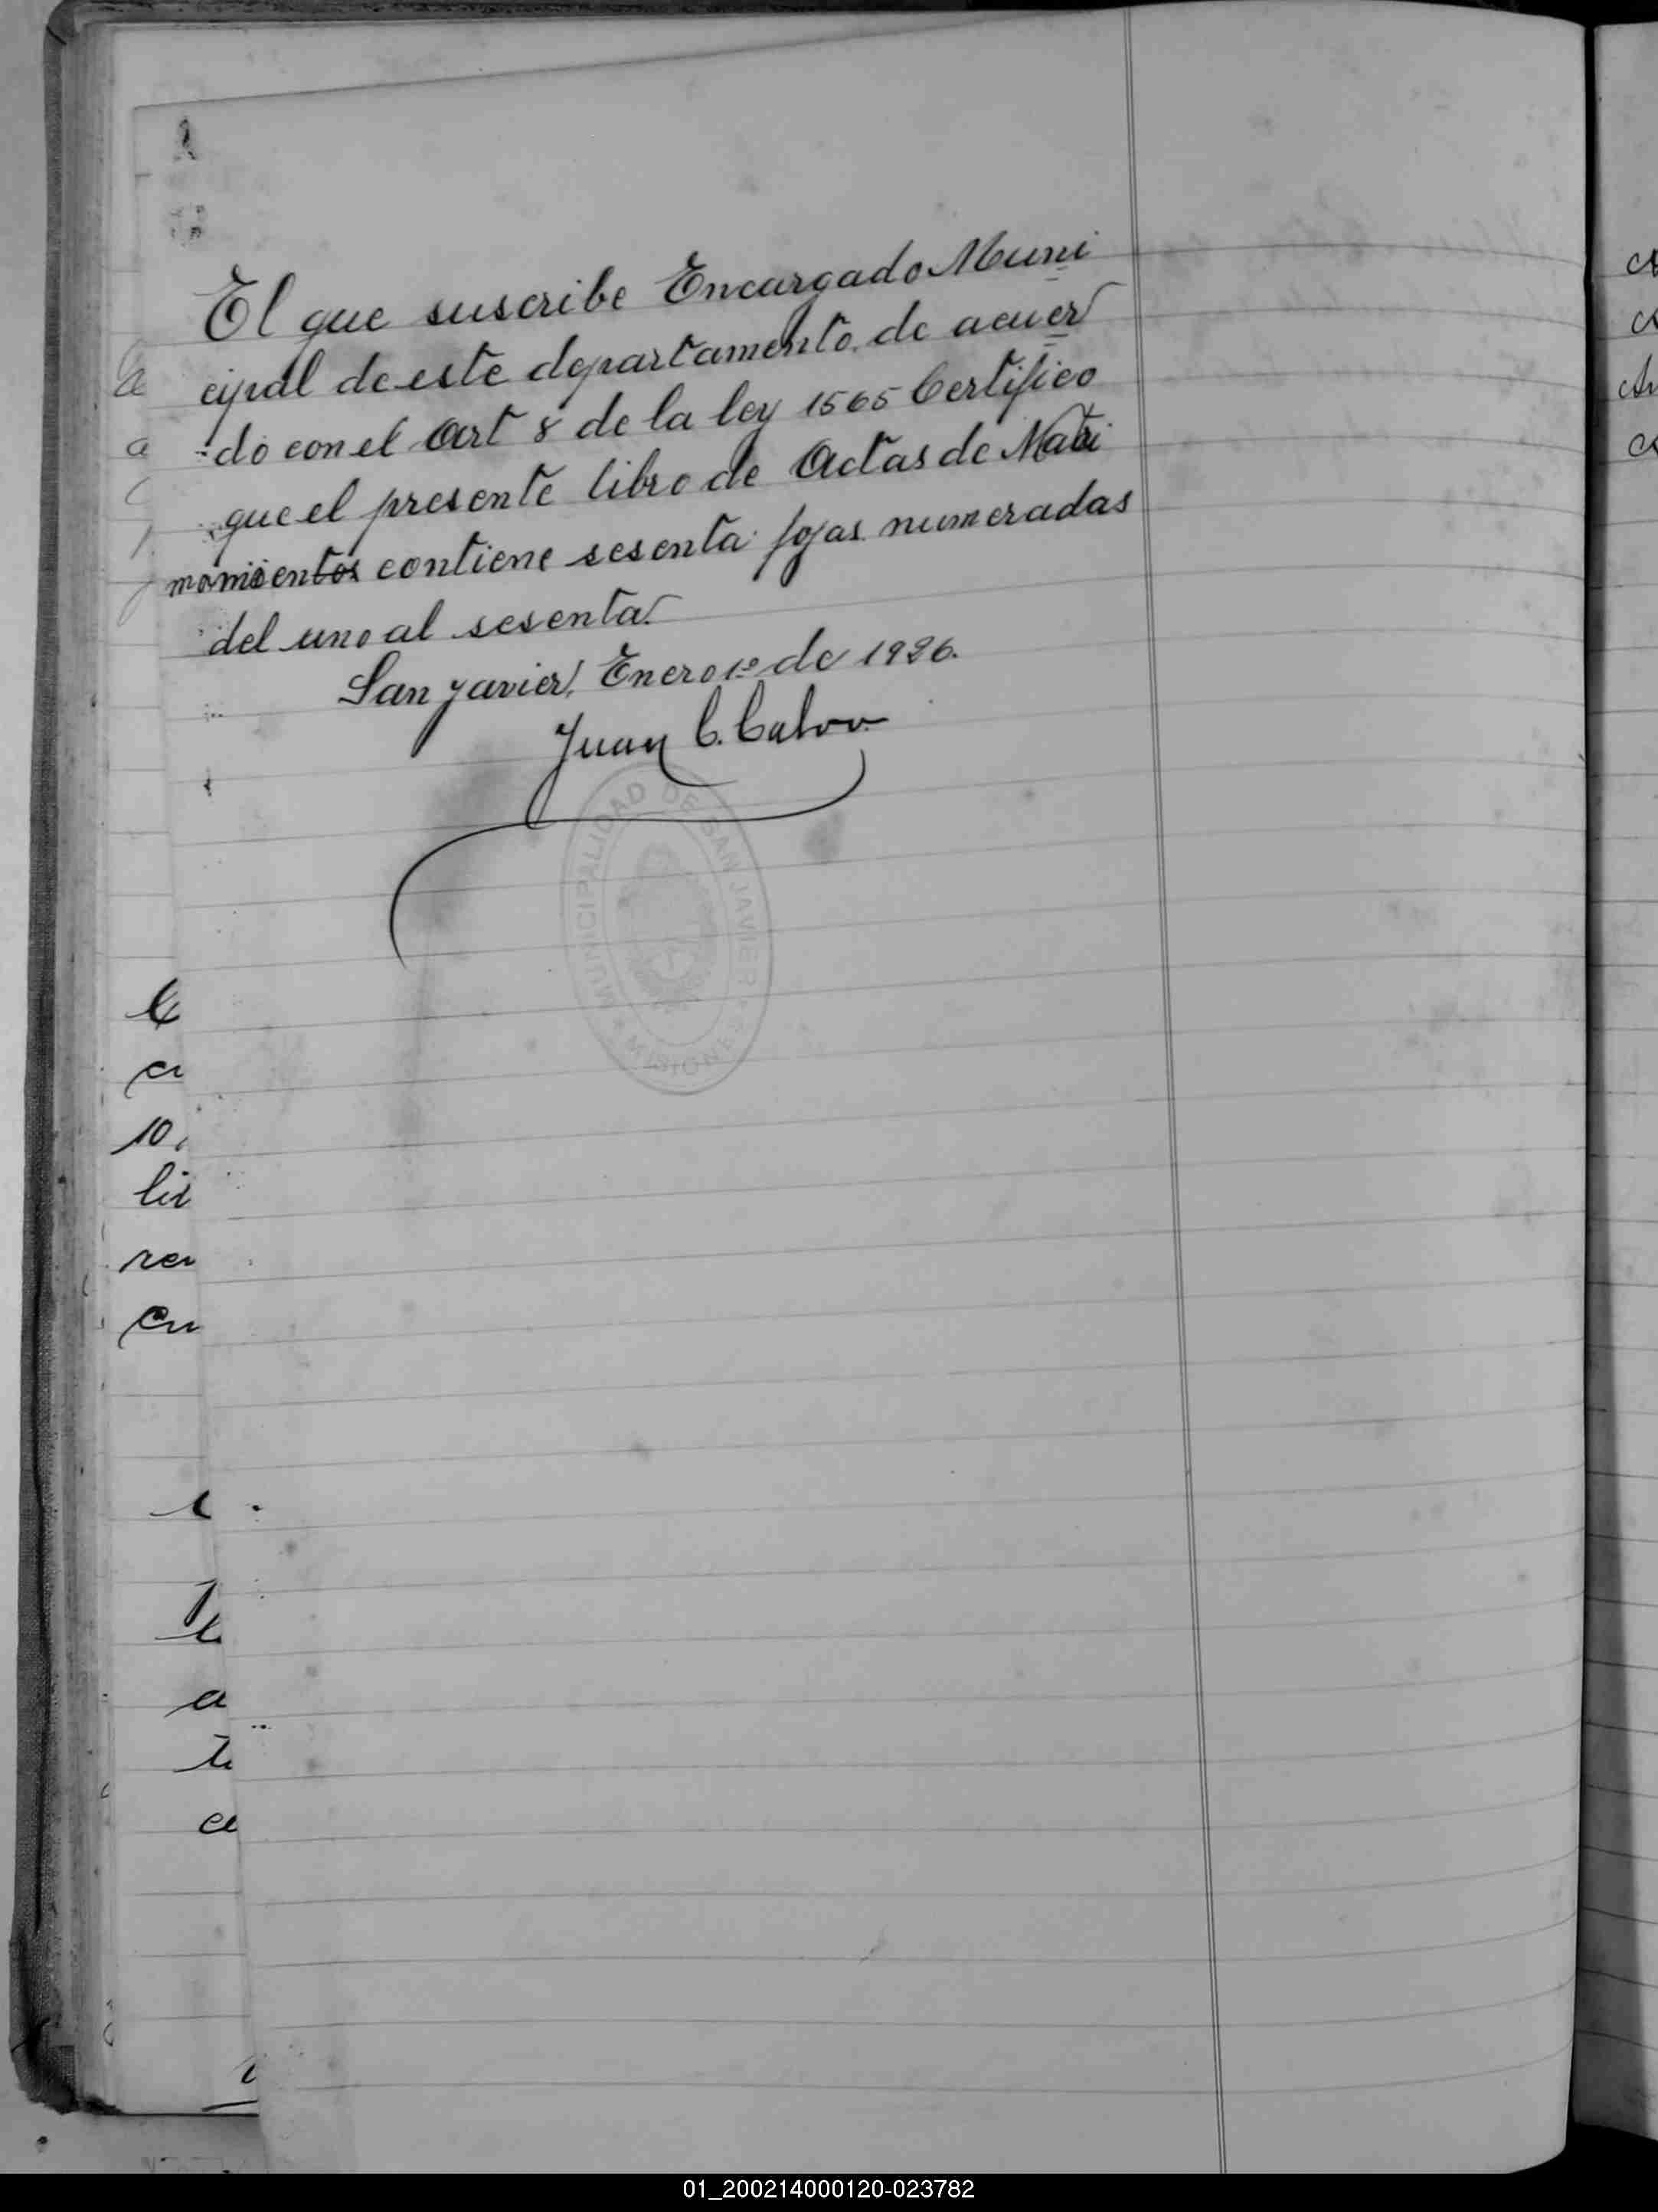 El que suscribe Encargado Muni
cipal de este departamento, de acuer
do con el Art 8 de la ley 1565 Certifico
que el presente libro de Actas de Matri
monios contiene sesenta fojas numeradas
del uno al sesenta.
San Javier, Enero 1º de 1926.
Juan C. Calvo
MUNICIPALIDAD DE SAN JAVIER
MISIONES
10
lit
01_200214000120-023782